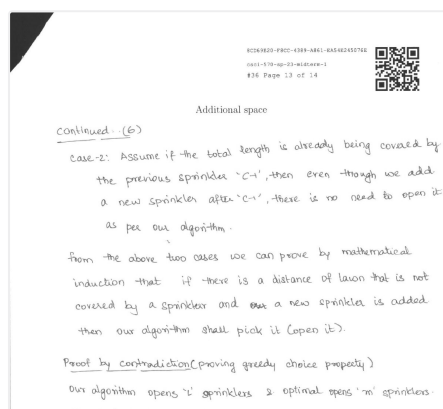 8CD69820-F8CC-4389-A861-EA54E2450766
csci-570-sp-23-midterm-1
#36 Page 13 of 14
Additional space
continued..(6)
case-2: Assume if the total length is already being covered by
the previous sprinkler 'c-1', then even though we add
a new sprinkler after 'c-1', there is no need to open it
as per our algorithm.
from the above two cases we can prove by mathematical
induction that if there is a distance of lawn that is not
covered by a sprinkler and a new sprinkler is added
then our algorithm shall pick it (open it).
Proof by contradiction (proving greedy choice property)
our algorithm opens 'i' sprinklers & optimal opens 'm' sprinklers.